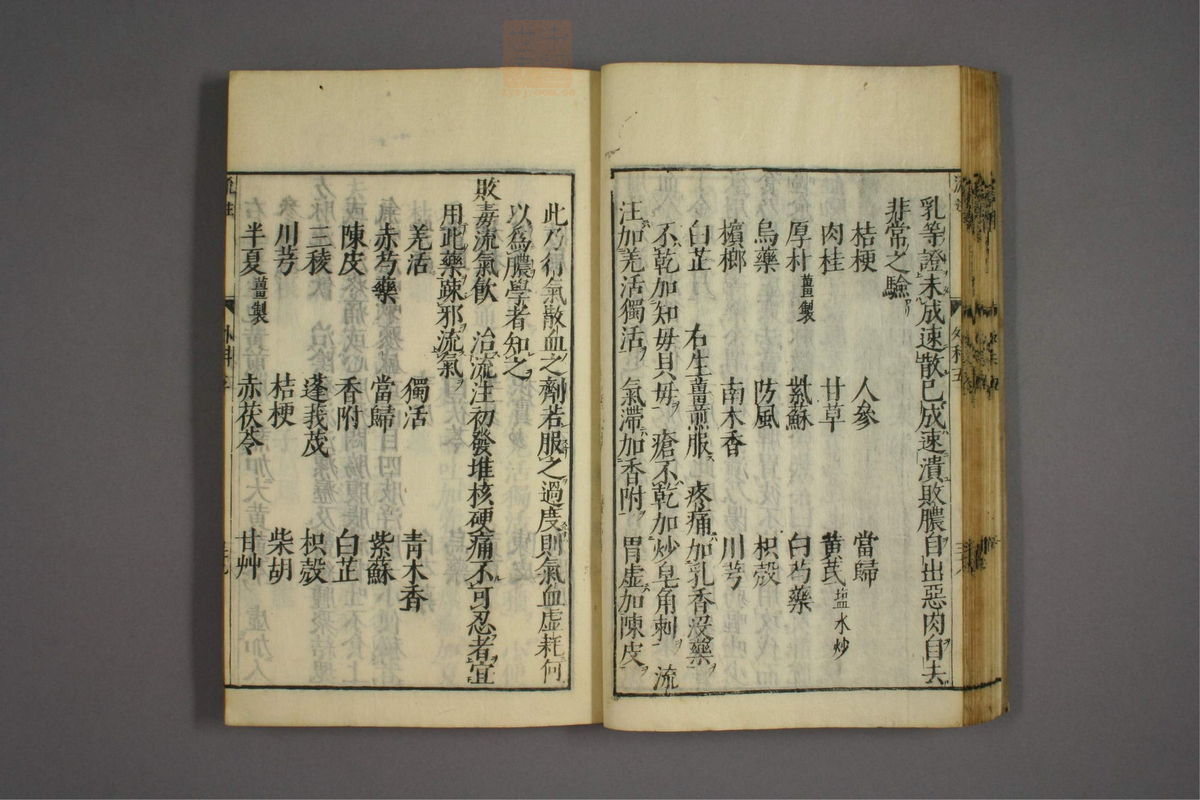 乳等證未成速散已成速潰敗膿自出惡肉自去
非常之驗
桔梗 人參 當歸
肉桂 甘草 黃芪 盐水炒
厚朴 薑製 紫蘇 白芍藥
烏藥 防風 枳殼
檳榔 南木香 川芎
白芷 右生薑煎服 疼痛加乳香沒藥
不乾加知毋貝毋 瘡不乾加炒皂角刺 流
汪加羌活獨活 氣滯加香附 胃虛加陳皮
此乃行氣散血之劑若服之過度則氣血虛耗何
以爲膿學者知之
敗毒流氣飲 治流注初發堆核硬痛不可忍者宜
用此藥踈邪流氣
羌活 獨活 青木香
赤芍藥 當歸 紫蘇
陳皮 香附 白芷
三稜 蓬莪茂 枳殼
川芎 桔梗 柴胡
半夏 薑製 赤茯苓 甘艸